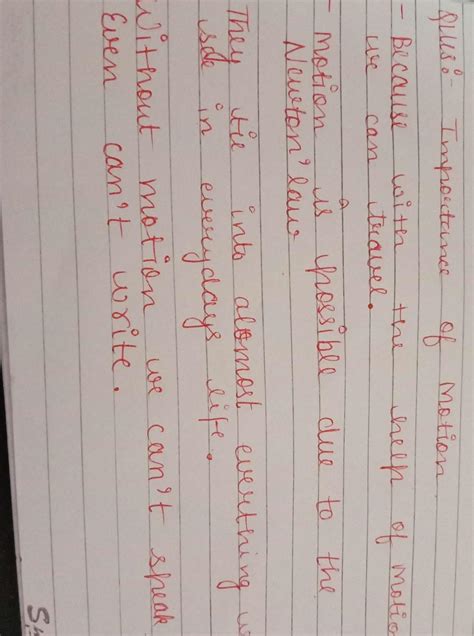 Ques:- Importance of Motion
- Because with the help of motio
we can travel.
- motion is possible due to the
Newton' law
They tie into alomost everything w
sde in everydays life.
Without motion we can't speak
Even can't write.